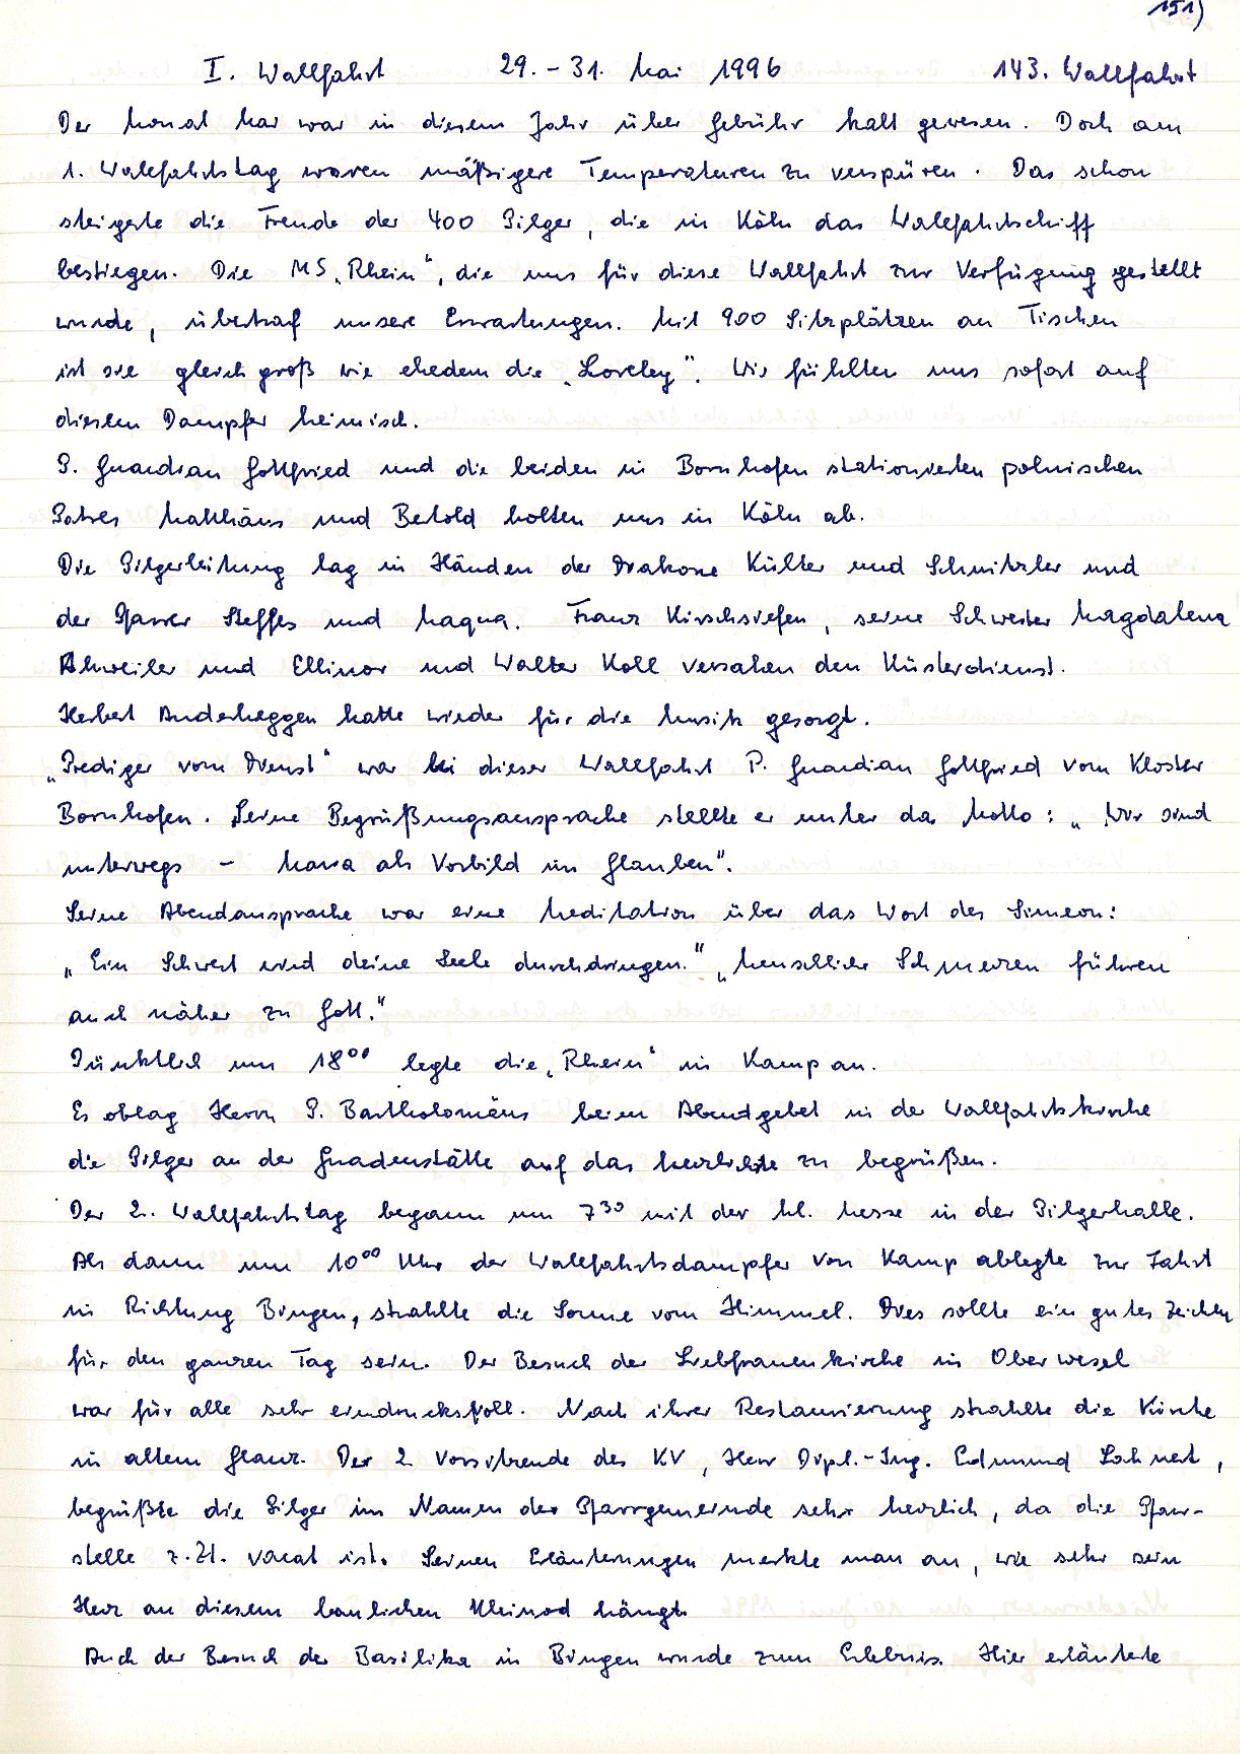 151)
I. Wallfahrt 29.-31. Mai 1996 143. Wallfahrt
Der Monat Mai war in diesem Jahr über Gebühr kalt gewesen. Doch am
1. Wallfahrtstag waren mäßigere Temperaturen zu verspüren. Das schon
steigerte die Freude der 400 Pilger, die in Köln das Wallfahrtschiff
bestiegen. Die MS „Rhein", die uns für diese Wallfahrt zur Verfügung gestellt
wurde, übertraf unsere Erwartungen. Mit 900 Sitzplätzen an Tischen
ist sie gleich groß wie ehedem die „Loreley". Wir fühlten uns sofort auf
diesem Dampfer heimisch.
P. Guardian Gottfried und die beiden in Bornhofen stationierten polnischen
Patres Matthäus und Bertold holten uns in Köln ab.
Die Pilgerleitung lag in Händen der Diakone Külter und Schnitzler und
der Pfarrer Steffes und Maqua. Franz Kirschsiefen, seine Schwester Magdalena
Ahrweiler und Ellinor und Walter Koll versahen den Küsterdienst.
Herbert Anderheggen hatte wieder für die Musik gesorgt.
„Prediger vom Dienst" war bei dieser Wallfahrt P. Guardian Gottfried vom Kloster
Bornhofen. Seine Begrüßungsansprache stellte er unter das Motto: „Wir sind
unterwegs – Maria als Vorbild im Glauben".
Seine Abendansprache war eine Meditation über das Wort des Simeon:
„Ein Schwert wird deine Seele durchdringen." „Menschliche Schmerzen führen
auch näher zu Gott."
Pünktlich um 18⁰⁰ legte die „Rhein" in Kamp an.
Es oblag Herrn P. Bartholomäus beim Abendgebet in der Wallfahrtskirche
die Pilger an der Gnadenstätte auf das herzlichste zu begrüßen.
Der 2. Wallfahrtstag begann um 7³⁰ mit der hl. Messe in der Pilgerhalle.
Als dann um 10⁰⁰ Uhr der Wallfahrtsdampfer von Kamp ablegte zur Fahrt
in Richtung Bingen, strahlte die Sonne vom Himmel. Dies sollte ein gutes Zeichen
für den ganzen Tag sein. Der Besuch der Liebfrauenkirche in Oberwesel
war für alle sehr eindrucksvoll. Nach ihrer Restaurierung strahlte die Kirche
in altem Glanz. Der 2. Vorsitzende des KV, Herr Dipl.-Ing. Edmund Lahnert,
begrüßte die Pilger im Namen der Pfarrgemeinde sehr herzlich, da die Pfarr-
stelle z. Zt. vacat ist. Seinen Erläuterungen merkte man an, wie sehr sein
Herz an diesem baulichen Kleinod hängt.
Auch der Besuch der Basilika in Bingen wurde zum Erlebnis. Hier erläuterte